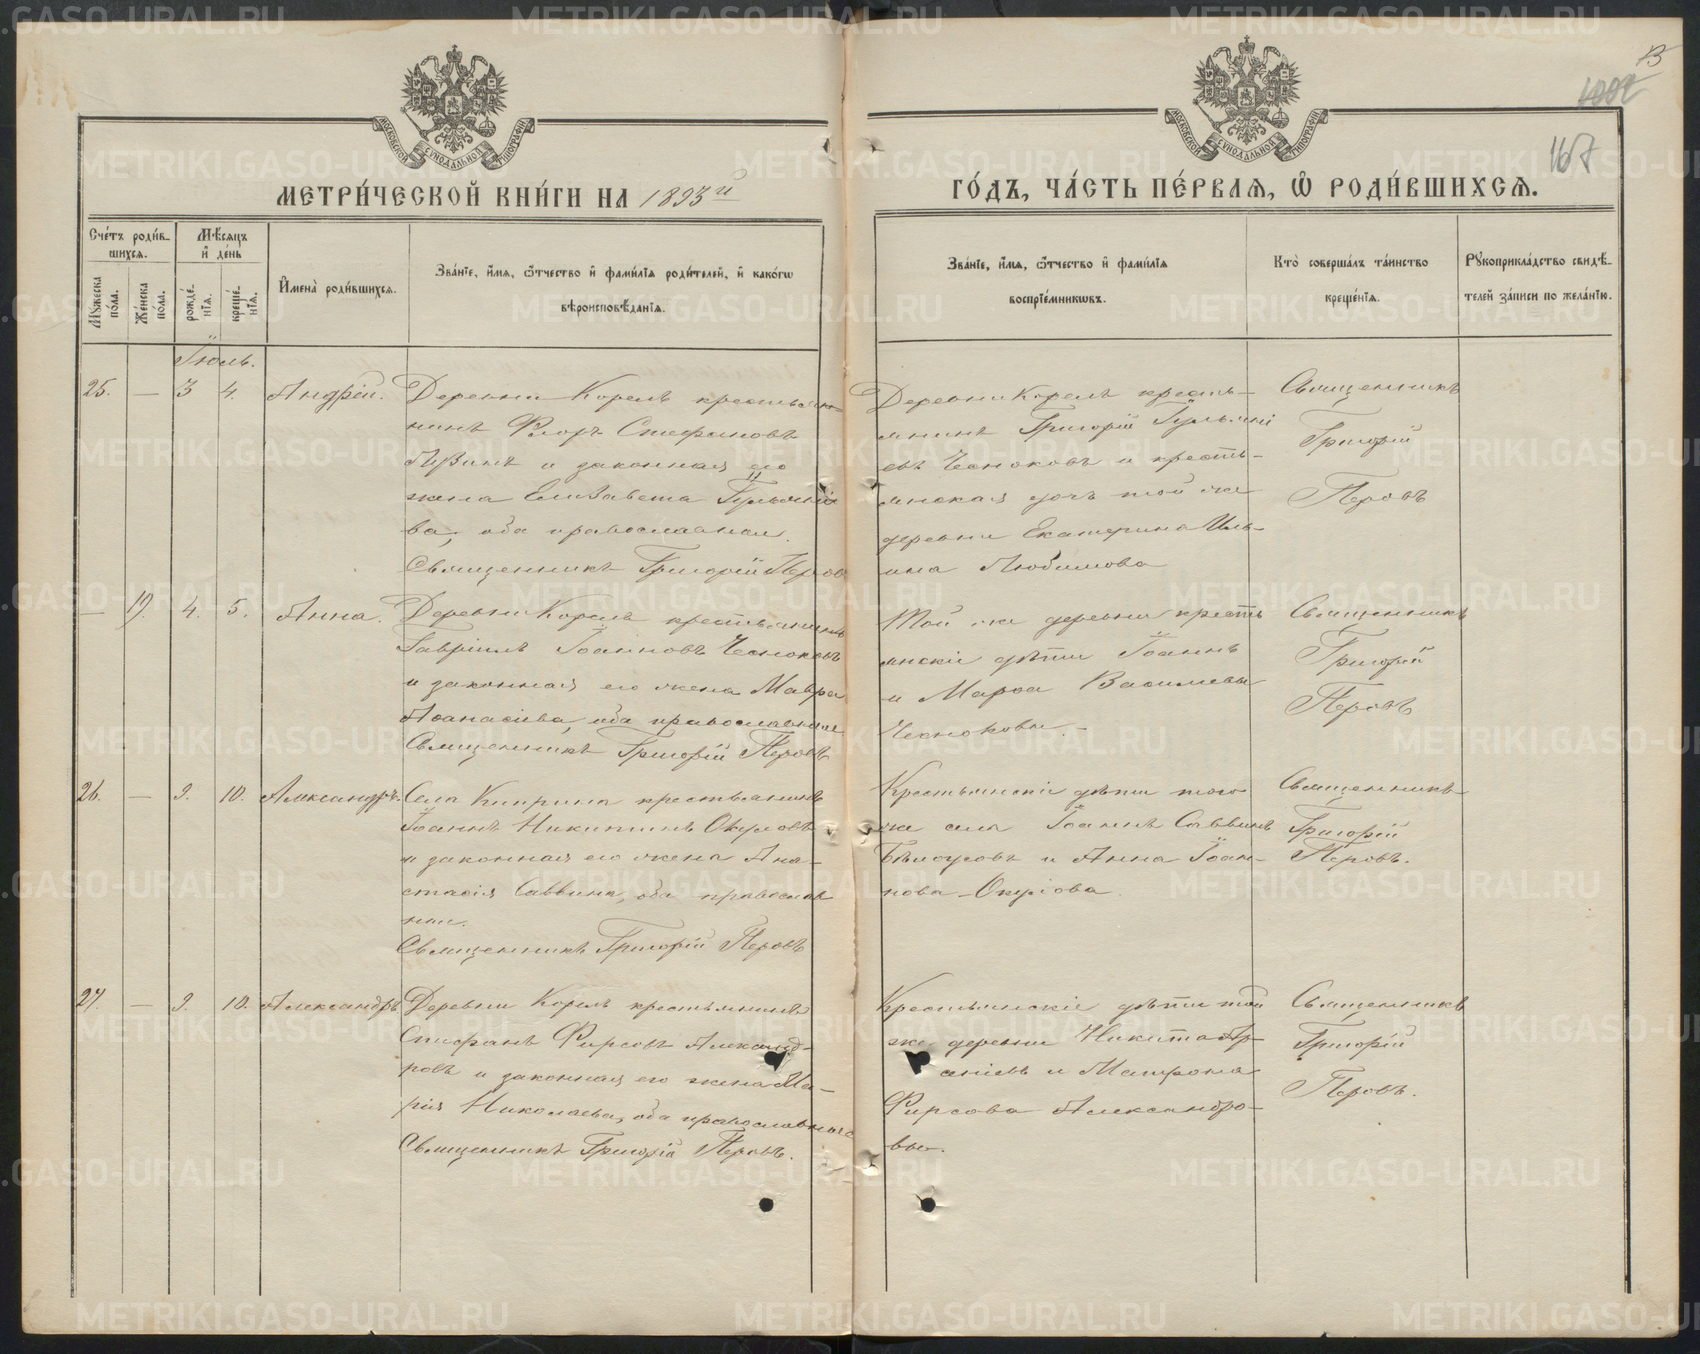 МЕТРИ́ЧЕСКОЙ КНИ́ГИ НА 1893й
ГО́ДЪ, ЧА́СТЬ ПЕ́РВАѦ, Ѡ РОДИ́ВШИХСѦ.
167
МОСКОВСКОЙ СѴНОДАЛЬНОЙ ТИПОГРАФІИ
МОСКОВСКОЙ СѴНОДАЛЬНОЙ ТИПОГРАФІИ
Сче́тъ роди́в-
шихсѧ.
Мꙋжеска по́ла.
Же́нска по́ла.
Мѣ́сѧцъ
и҆ де́нь
рожде́-
нїѧ.
креще́-
нїѧ.
И҆мена̀ роди́вшихсѧ.
Зва́нїе, и҆́мѧ, ѻ҆́тчество и҆ фами́лїѧ роди́телей, и҆ како́гѡ
вѣроисповѣ́данїѧ.
Зва́нїе, и҆́мѧ, ѻ҆́тчество и҆ фами́лїѧ
воспрїе́мникѡвъ.
Кто̀ соверша́лъ та́инство
креще́нїѧ.
Рꙋкоприкла́дство свидѣ́-
телей за́писи по жела́нїю.
Іюль.
25. — 3 4. Андрей.
Деревни Корелъ крестья-
нинъ Флоръ Стефановъ
и законная его
жена Елизавета
ва, оба православные.
Священникъ Григорій Перовъ
Деревни Корелъ кресть-
янинъ Григорій
евъ Чесноковъ и кресть-
янская дочь той же
деревни Екатерина Иль-
ина Любимова
Священникъ
Григорій
Перовъ
— 19. 4. 5. Анна.
Деревни Корелъ крестьянинъ
Гавріилъ Іоанновъ Чесноковъ
и законная его жена Мавра
Аѳанасіева, оба православные
Священникъ Григорій Перовъ
Той же деревни кресть
янскіе дѣти Іоаннъ
и Марѳа Васильевы
Чесноковы.
Священникъ
Григорій
Перовъ
26. — 9. 10. Александръ.
Села Киприна крестьянинъ
Іоаннъ Никитинъ
и законная его жена Ана-
стасія Саввина, оба православ
ные.
Священникъ Григорій Перовъ
Крестьянскіе дѣти того
же села Іоаннъ Саввинъ
Бѣлоусовъ и Анна Іоан-
нова
Священникъ
Григорій
Перовъ.
27. — 9. 10. Александръ
Деревни Корелъ крестьянинъ
Стефанъ Фирсовъ Александ-
ровъ и законная его жена Ма-
рія Николаева, оба православные
Священникъ Григорій Перовъ.
Крестьянскіе дѣти той
же деревни Никита Ар-
сеніевъ и Матрона
Фирсова Александро-
вы.
Священникъ
Григорій
Перовъ.
METRIKI.GASO-URAL.RU